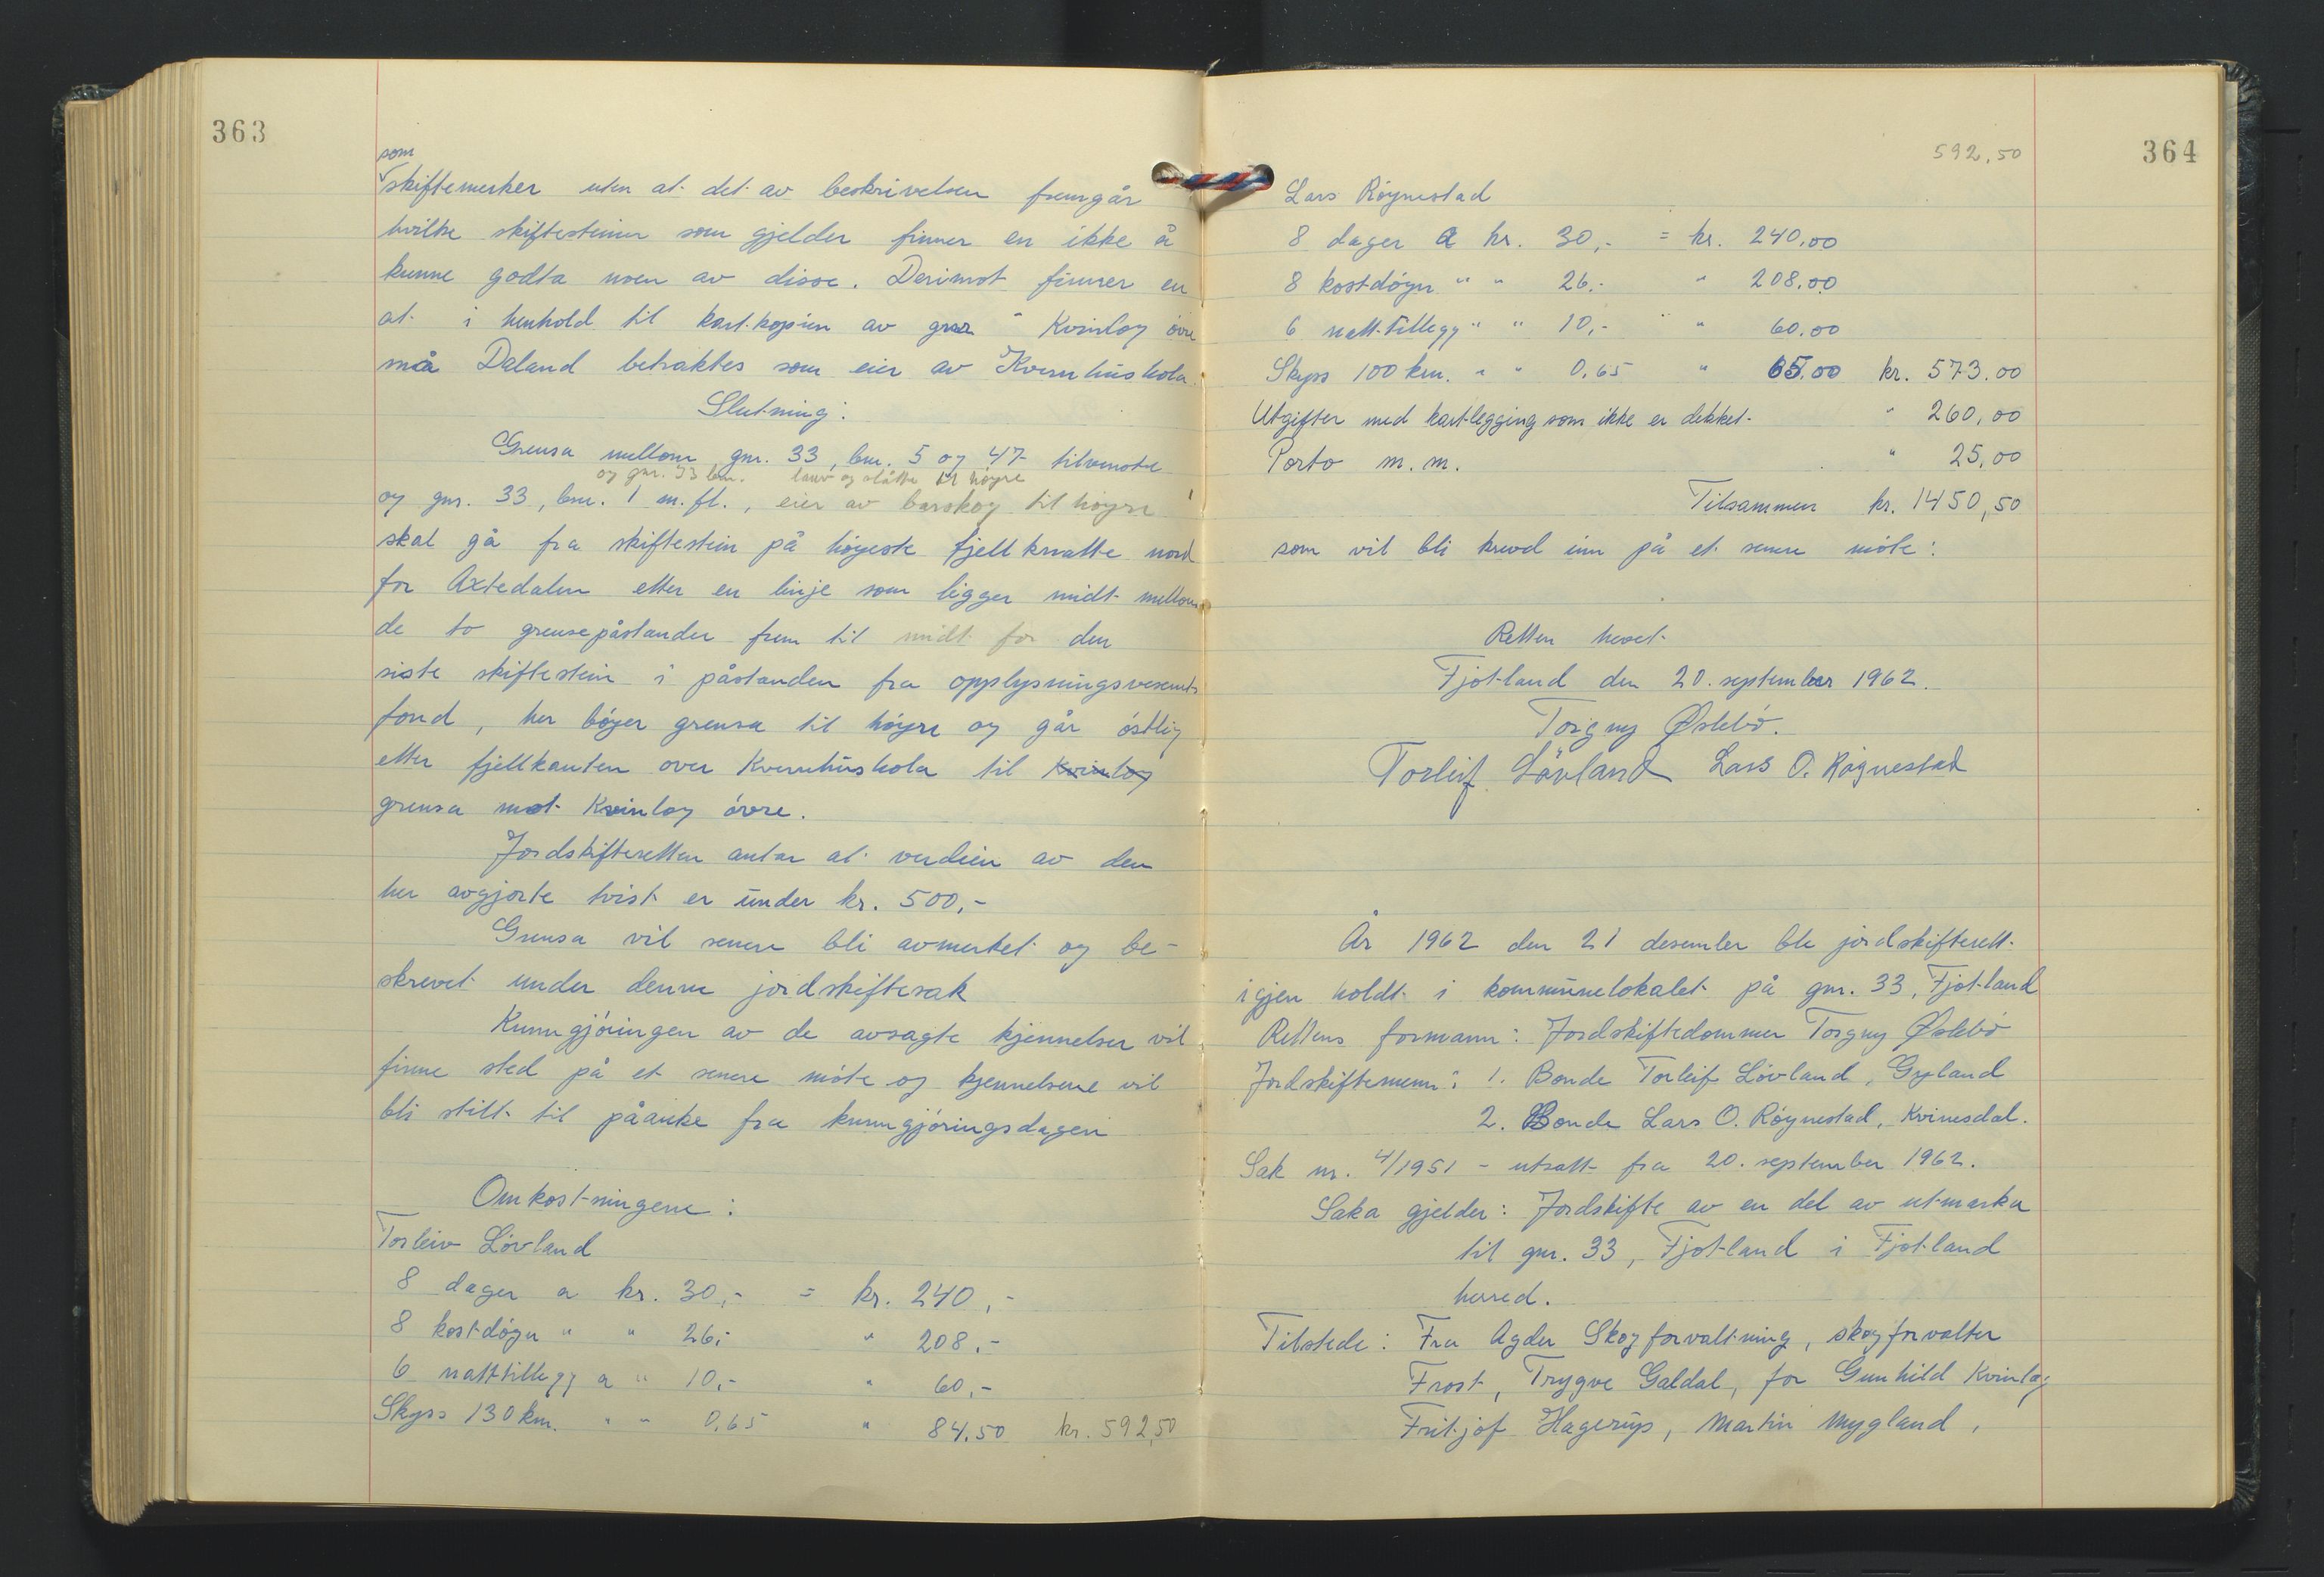 363
som
skiftemerker uten at det av beskrivelsen fremgår
hvilke skiftesteiner som gjelder finner en ikke å
kunne godta noen av disse. Derimot finner en
at i henhold til kartkopien av " Kvinlog övre
må Daland betraktes som eier av Kvernhushola.
Slutning:
Grensa mellom gnr. 33, bnr. 5 og 47 tilvenstre
og gnr. 33 bnr. lauv og slåtte til höyre
og gnr. 33, bnr. 1 m.fl., eier av barskog til höyre
skal gå fra skiftestein på höyeste fjellknatte nord
for Axtedalen etter en linje som ligger midt mellom
de to grensepåstander frem til midt for den
siste skiftestein i påstanden fra opplysningsvesenets
fond, her böyer grensa til höyre og går östlig
etter fjellkanten over Kvernhushola til Kvinlog
grensa mot Kvinlog övre.
Jordskifteretten antar at verdien av den
her avgjorte tvist er under kr. 500,-
Grensa vil senere bli avmerket og be-
skrevet under denne jordskiftesak
Kunngjöringen av de avsagte kjennelser vil
finne sted på et senere möte og kjennelsene vil
bli stillt til påanke fra kunngjöringsdagen
Omkostningene:
Torleiv Lövland
8 dager a kr. 30,- = kr. 240,-
8 kostdögn " " 26,- " 208,-
6 nattillegg a " 10,- " 60,-
Skyss 130 km. " " 0,65 " 84,50 kr. 592,50
364
592,50
Lars Röynestad
8 dager a kr. 30,- = kr. 240,00
8 kostdögn " " 26,- " 208,00
6 natt-tillegg " " 10,- " " 60,00
Skyss 100 km. " " 0,65 " 65,00 kr. 573,00
Utgifter med kartlegging som ikke er dekket " 260,00
Porto m.m. " 25,00
Tilsammen kr. 1450,50
som vil bli krevd inn på et senere möte:
Retten hevet
Fjotland den 20. september 1962.
Torgny Østebö.
Torleif Lövland Lars O. Röynestad
År 1962 den 21 desember ble jordskifterett
igjen holdt i kommunelokalet på gnr. 33, Fjotland
Rettens formann: Jordskiftedommer Torgny Østebö
Jordskiftemenn: 1. Bonde Torleif Lövland, Gyland
2. Bonde Lars O. Röynestad, Kvinesdal.
Sak nr. 4/1951 - utsatt fra 20. september 1962.
Saka gjelder: Jordskifte av en del av utmarka
til gnr. 33, Fjotland i Fjotland
herred.
Tilstede: Fra Agder Skogforvaltning, skogforvalter
Frost, Trygve Galdal, for Gunhild Kvinlog
Fritjof Hagerup, Martin Mygland,